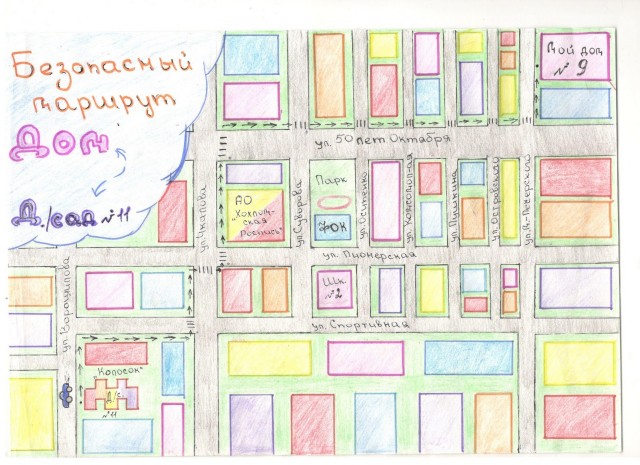 Безопасный
маршрут
Дом
Д/сад №11
Мой дом
№ 9
ул. 50 лет Октября
ул. Чкалова
АО
"Хохлом-
ская
Роспись"
ул. Суворова
Парк
ФОК
ул. Осипенко
ул. Комсомольская
ул. Пушкина
ул. Островского
ул. Пионерская
ул. Ворошилова
Шк.
№2
ул. Спортивная
"Колосок"
Д/с
№11